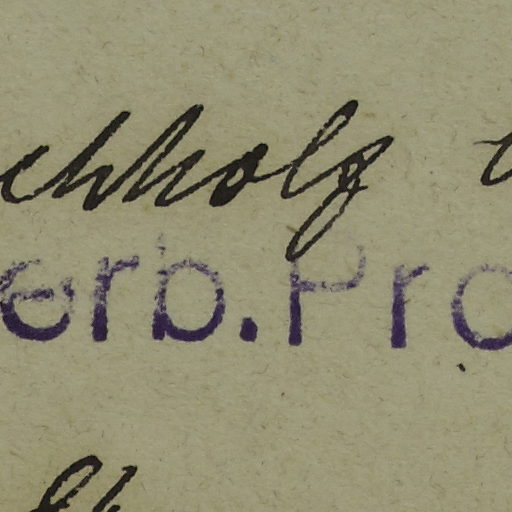 chholz
erb. Pro